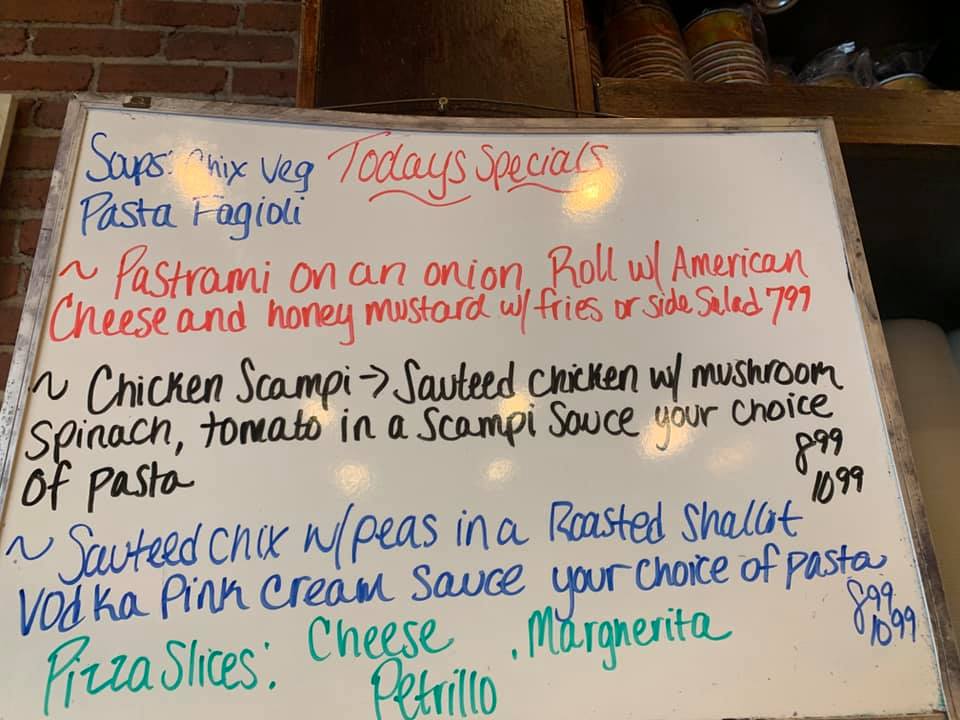 Soups: Chix Veg
Pasta Fagioli
Todays Specials
~ Pastrami on an onion Roll w/ American
Cheese and honey mustard w/ fries or side Salad 799
~ Chicken Scampi → Sauteed chicken w/ mushroom
spinach, tomato in a Scampi Sauce your choice
of pasta
899
1099
~ Sauteed chix w/ peas in a Roasted Shallot
Vodka Pink Cream Sauce your choice of pasta
899
1099
Pizza Slices: Cheese . Margherita
Petrillo